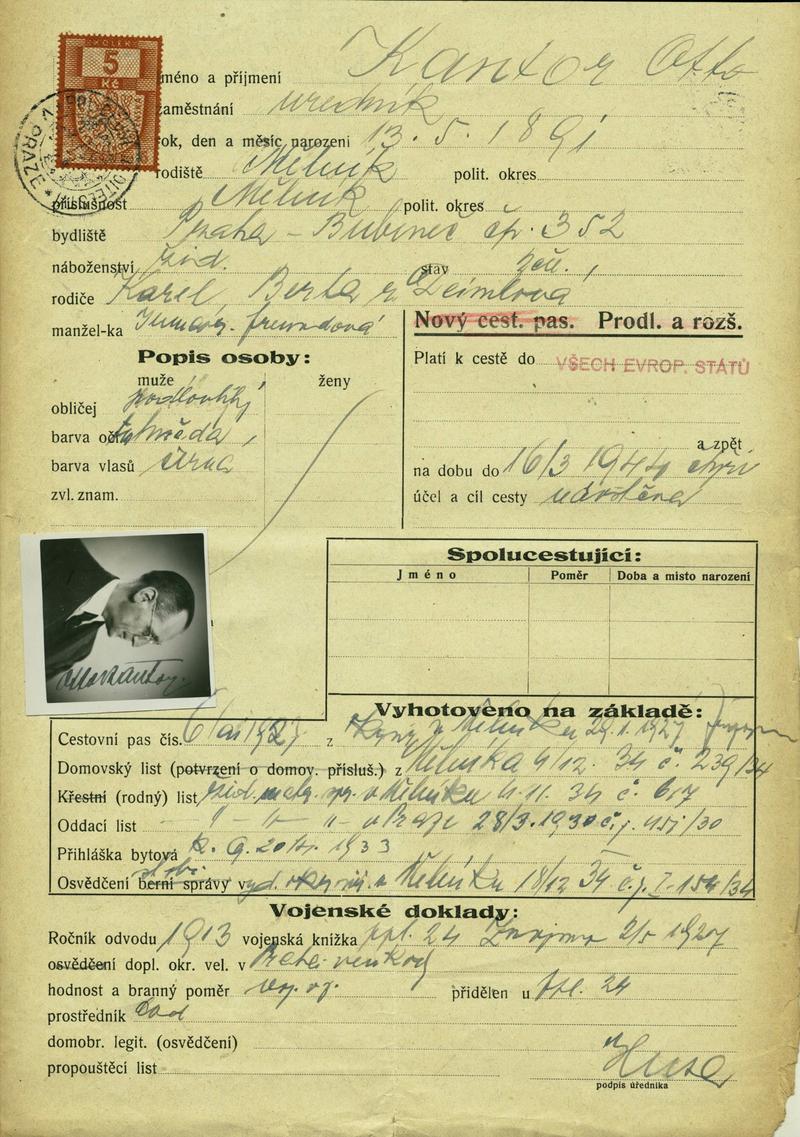 KOLEK
5
Kč
V PRAZE
Jméno a příjmení Kantor Otto
zaměstnání úředník
rok, den a měsíc narození 13. 5. 1891
rodiště Mělník polit. okres
příslušnost Mělník polit. okres
bydliště Praha - Bubeneč čp. 352
náboženství žid. stav žen.
rodiče Karel, Berta r. Deimlová
manžel-ka
Nový cest. pas. Prodl. a rozš.
Popis osoby:
muže ženy
obličej podlouhlý
barva očí hnědá
barva vlasů černá
zvl. znam.
Platí k cestě do VŠECH EVROP. STÁTŮ
a zpět
na dobu do 16/3 1944
účel a cíl cesty návštěva
Otto Kantor
Spolucestující:
Jméno Poměr Doba a místo narození
Vyhotoveno na základě:
Cestovní pas čís. 1927 z Mělníku 29.1.1927
Domovský list (potvrzení o domov. přísluš.) z Mělníka 4/12. 34 č. 239/34
Křestní (rodný) list žid. matr. v Mělníku 4. 11. 34 č. 617
Oddací list " " " v Praze 28/3. 1930 č. j. 451/30
Přihláška bytová 1933
Osvědčení berní správy v Mělníku 18/12 34 č. j. I-154/34
Vojenské doklady:
Ročník odvodu 1913 vojenská knížka ppl. 24 Znojmo 2/5 1927
osvědčení dopl. okr. vel. v Praha venkov
hodnost a branný poměr voj. v z. přidělen u ppl. 24
prostředník
domobr. legit. (osvědčení)
propouštěcí list
podpis úředníka